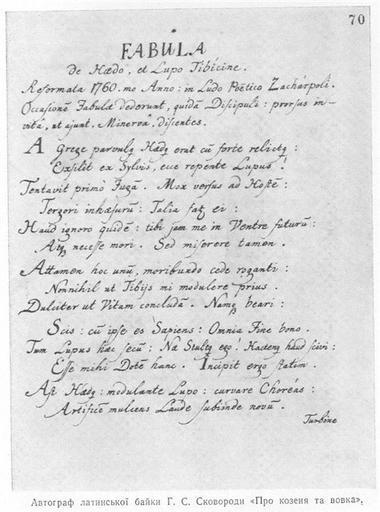 70
FABULA
de Hædo, et Lupo Tibicine.
Reformata 1760. mo Anno: in Ludo Poëtico Zachárpoli.
Occasionē Fabulæ dederunt, quidā Discipuli: prorsus in-
vitâ, ut ajunt. Minervâ, discentes.
A Grege parvulꝯ Hædꝯ erat cū forte relictꝯ:
Exsilit ex Sylvis, ecce repente Lupus!
Tentavit primò Fugā. Mox versus ad Hostē:
Tergori inhæsurū: Talia fatꝯ ei:
Haud ignoro quidē: tibi jam me in Ventre futurū:
Atqꝫ necesse mori. Sed miserere tamen.
Attamen hoc unū, moribundo cede roganti:
Nonnihil ut Tibijs mi modulere prius.
Dulciter ut Vitam concludā. Namqꝫ beari:
Scis: cū ipse es Sapiens: Omnia Fine bono.
Tum Lupus hæc secū: Næ Stultꝯ ego! Hactenꝯ haud scivi:
Esse mihi Dotē hanc. Incipit ergo statim.
Ast Hædꝯ: modulante Lupo: curvare Choréas:
Artificē mulcens Laude subinde novū.
Turbâne
Автограф латинської байки Г. С. Сковороди «Про козеня та вовка».